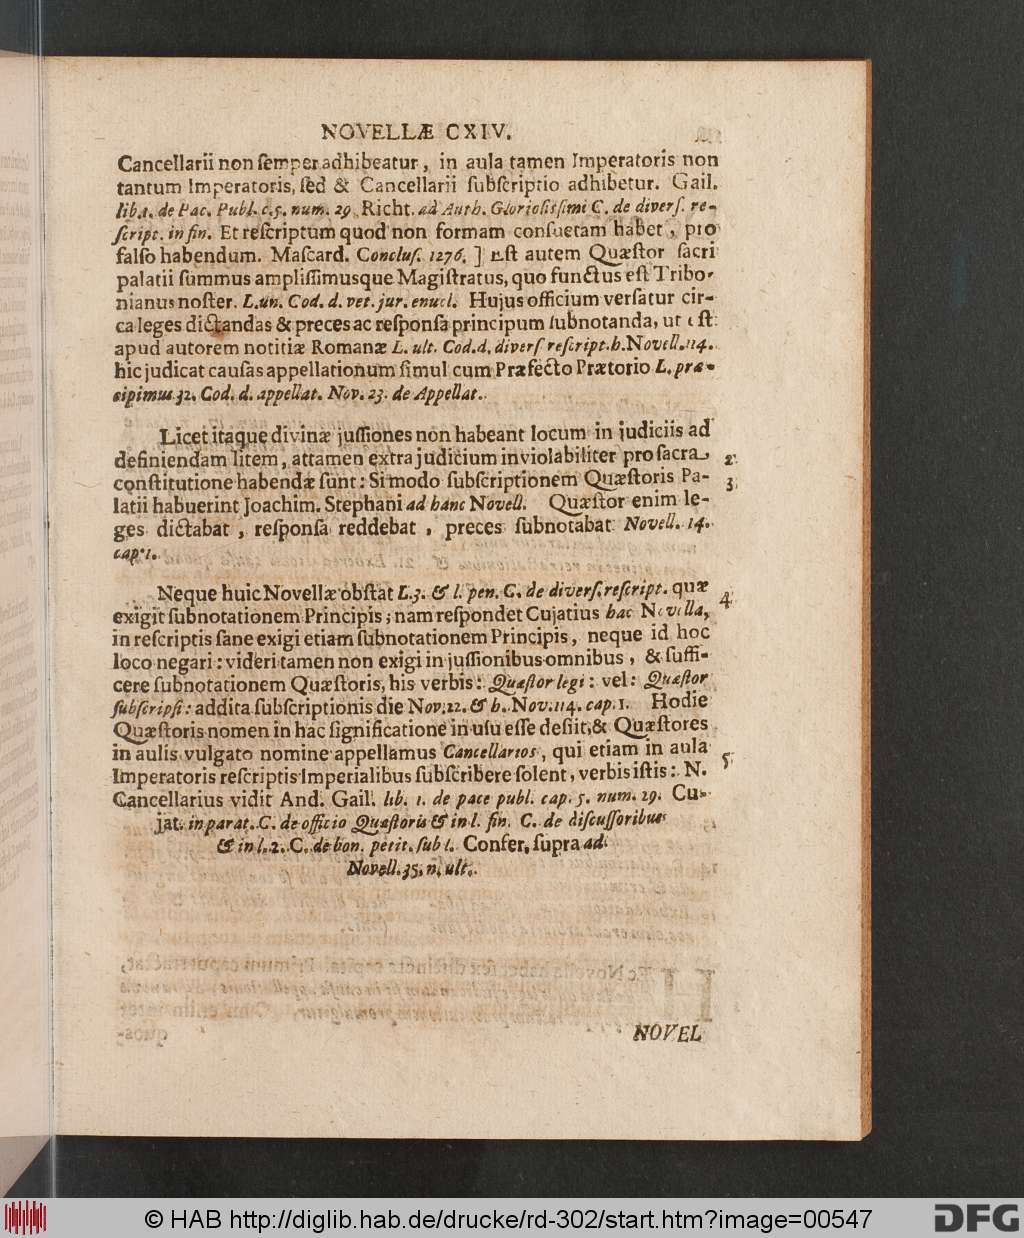 NOVELLÆ CXIV.
Cancellarii non ſemper adhibeatur, in aula tamen Imperatoris non
tantum Imperatoris, ſed & Cancellarii ſubſcriptio adhibetur. Gail.
lib.1. de Pac. Publ. c.5. num. 29. Richt. ad Auth. Glorioſiſſimi C. de diverſ. re-
ſcript. in fin. Et reſcriptum quod non formam conſuetam habet, pro
falſo habendum. Maſcard. Concluſ. 1276. ] Eſt autem Quæſtor ſacri
palatii ſummus ampliſſimusque Magiſtratus, quo functus eſt Tribo-
nianus noſter. L.un. Cod. d. vet. jur. enucl. Hujus officium verſatur cir-
ca leges dictandas & preces ac reſponſa principum ſubnotanda, ut eſt
apud autorem notitiæ Romanæ L. ult. Cod. d. diverſ reſcript. h. Novell. 114.
hic judicat cauſas appellationum ſimul cum Præfecto Prætorio L. præ-
cipimus 32. Cod. d. appellat. Nov. 23. de Appellat.
Licet itaque divinæ juſſiones non habeant locum in judiciis ad
definiendam litem, attamen extra judicium inviolabiliter pro ſacra 2.
conſtitutione habendæ ſunt: Si modo ſubſcriptionem Quæſtoris Pa- 3.
latii habuerint Joachim. Stephani ad hanc Novell. Quæſtor enim le-
ges dictabat, reſponſa reddebat, preces ſubnotabat Novell. 14.
cap. 1.
Neque huic Novellæ obſtat L.3. & l. pen. C. de diverſ. reſcript. quæ 4.
exigit ſubnotationem Principis; nam reſpondet Cujatius hac Novella,
in reſcriptis ſane exigi etiam ſubnotationem Principis, neque id hoc
loco negari: videri tamen non exigi in juſſionibus omnibus, & ſuffi-
cere ſubnotationem Quæſtoris, his verbis: Quæſtor legi: vel: Quæſtor
ſubſcripſi: addita ſubſcriptionis die Nov. 22. & h. Nov. 114. cap. 1. Hodie
Quæſtoris nomen in hac ſignificatione in uſu eſſe deſiit, & Quæſtores
in aulis vulgato nomine appellamus Cancellarios, qui etiam in aula 5.
Imperatoris reſcriptis Imperialibus ſubſcribere ſolent, verbis iſtis: N.
Cancellarius vidit And. Gail. lib. 1. de pace publ. cap. 5. num. 29. Cu-
jat. in parat. C. de officio Quæſtoris & in l. fin. C. de diſcuſſoribus
& in l. 2. C. de bon. petit. ſub t. Confer, ſupra ad
Novell. 35. n. ult.
NOVEL
© HAB http://diglib.hab.de/drucke/rd-302/start.htm?image=00547
DFG